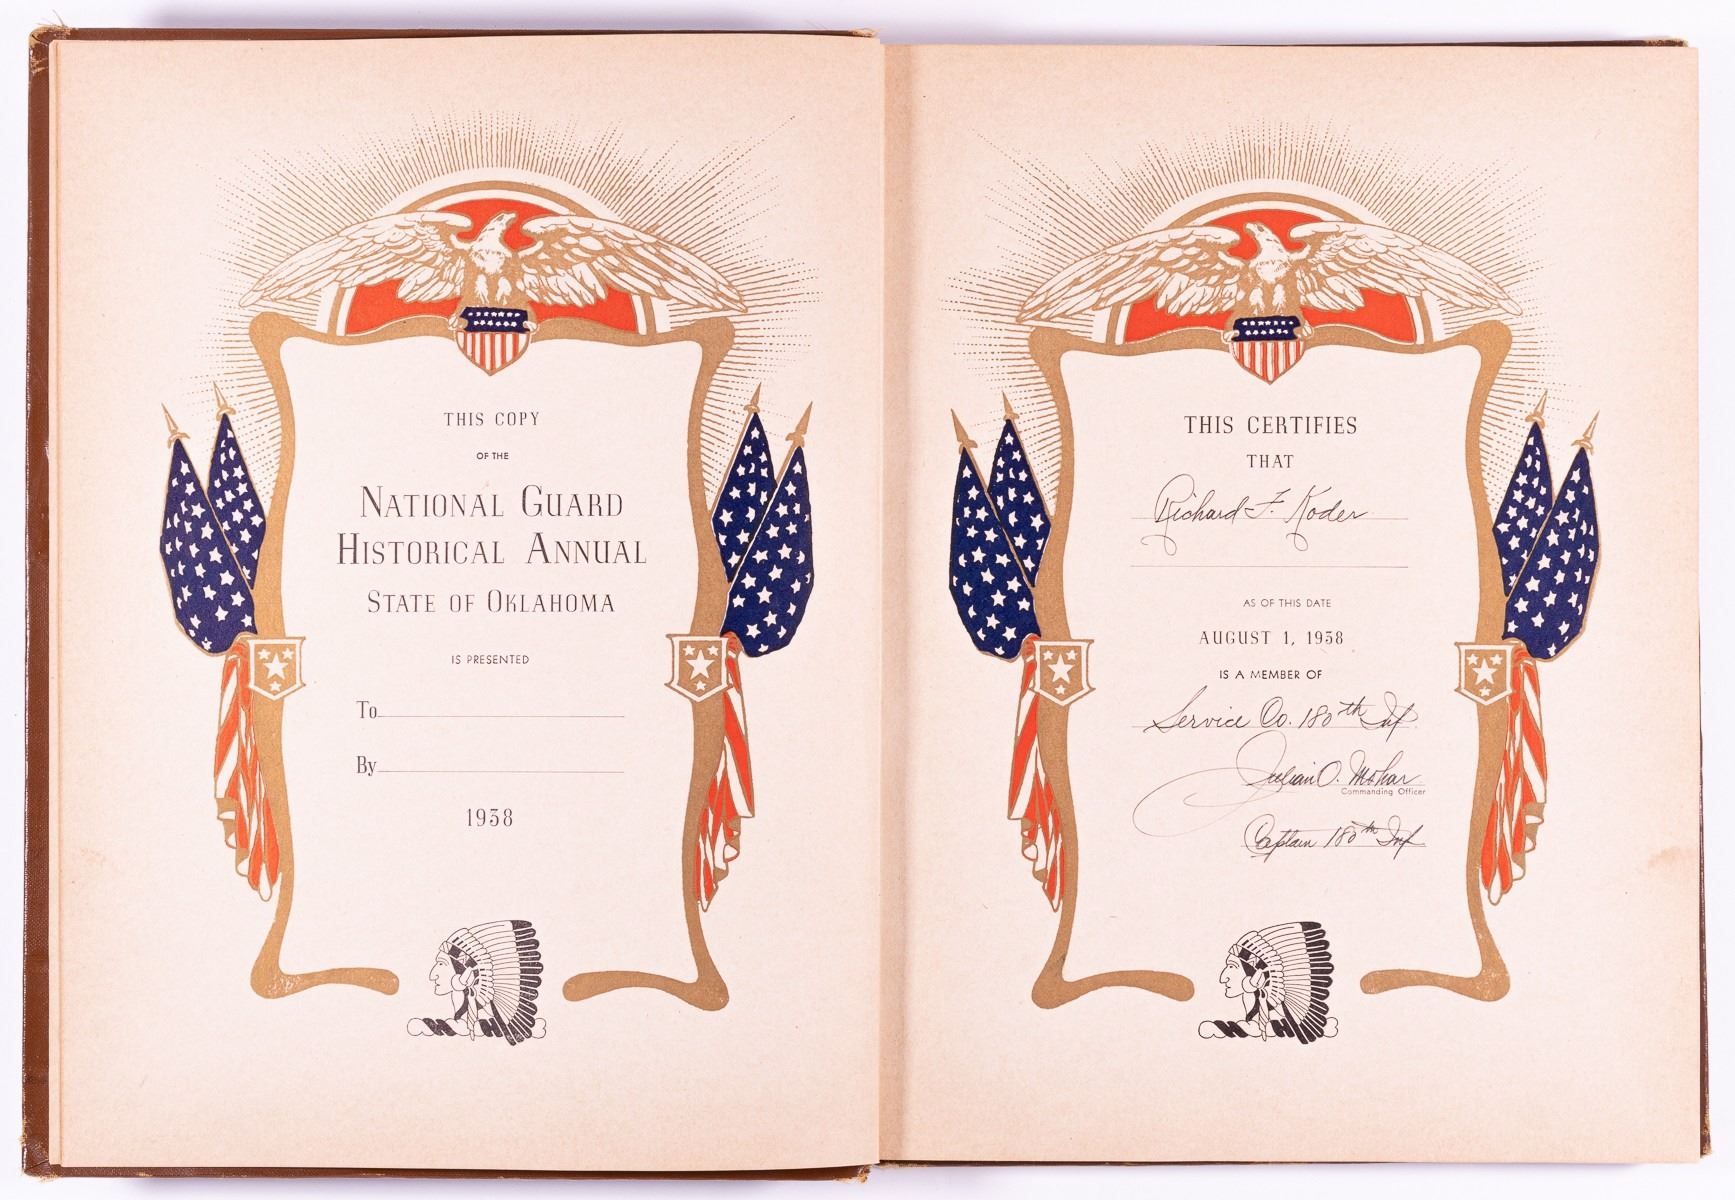 THIS COPY
OF THE
NATIONAL GUARD
HISTORICAL ANNUAL
STATE OF OKLAHOMA
IS PRESENTED
To
By
1938
THIS CERTIFIES
THAT
Richard F. Koder
AS OF THIS DATE
AUGUST 1, 1938
IS A MEMBER OF
Service Co. 180th Inf.
Julian O. Mohar
Commanding Officer
Captain 180th Inf